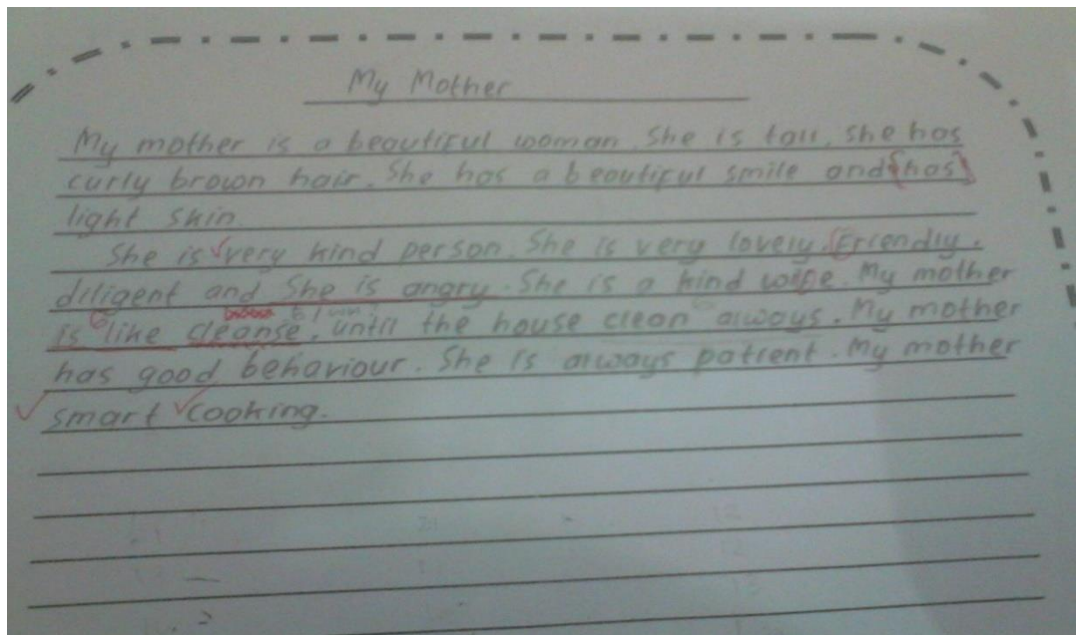 My Mother
My mother is a beautiful woman. She is tall, she has
curly brown hair. She has a beautiful smile and {has}
light skin.
She is √very kind person. She is very lovely. Friendly,
diligent and She is angry. She is a kind wife. My mother
is like cleanse. until the house clean always. My mother
has good behaviour. She is always patient. My mother
smart √cooking.